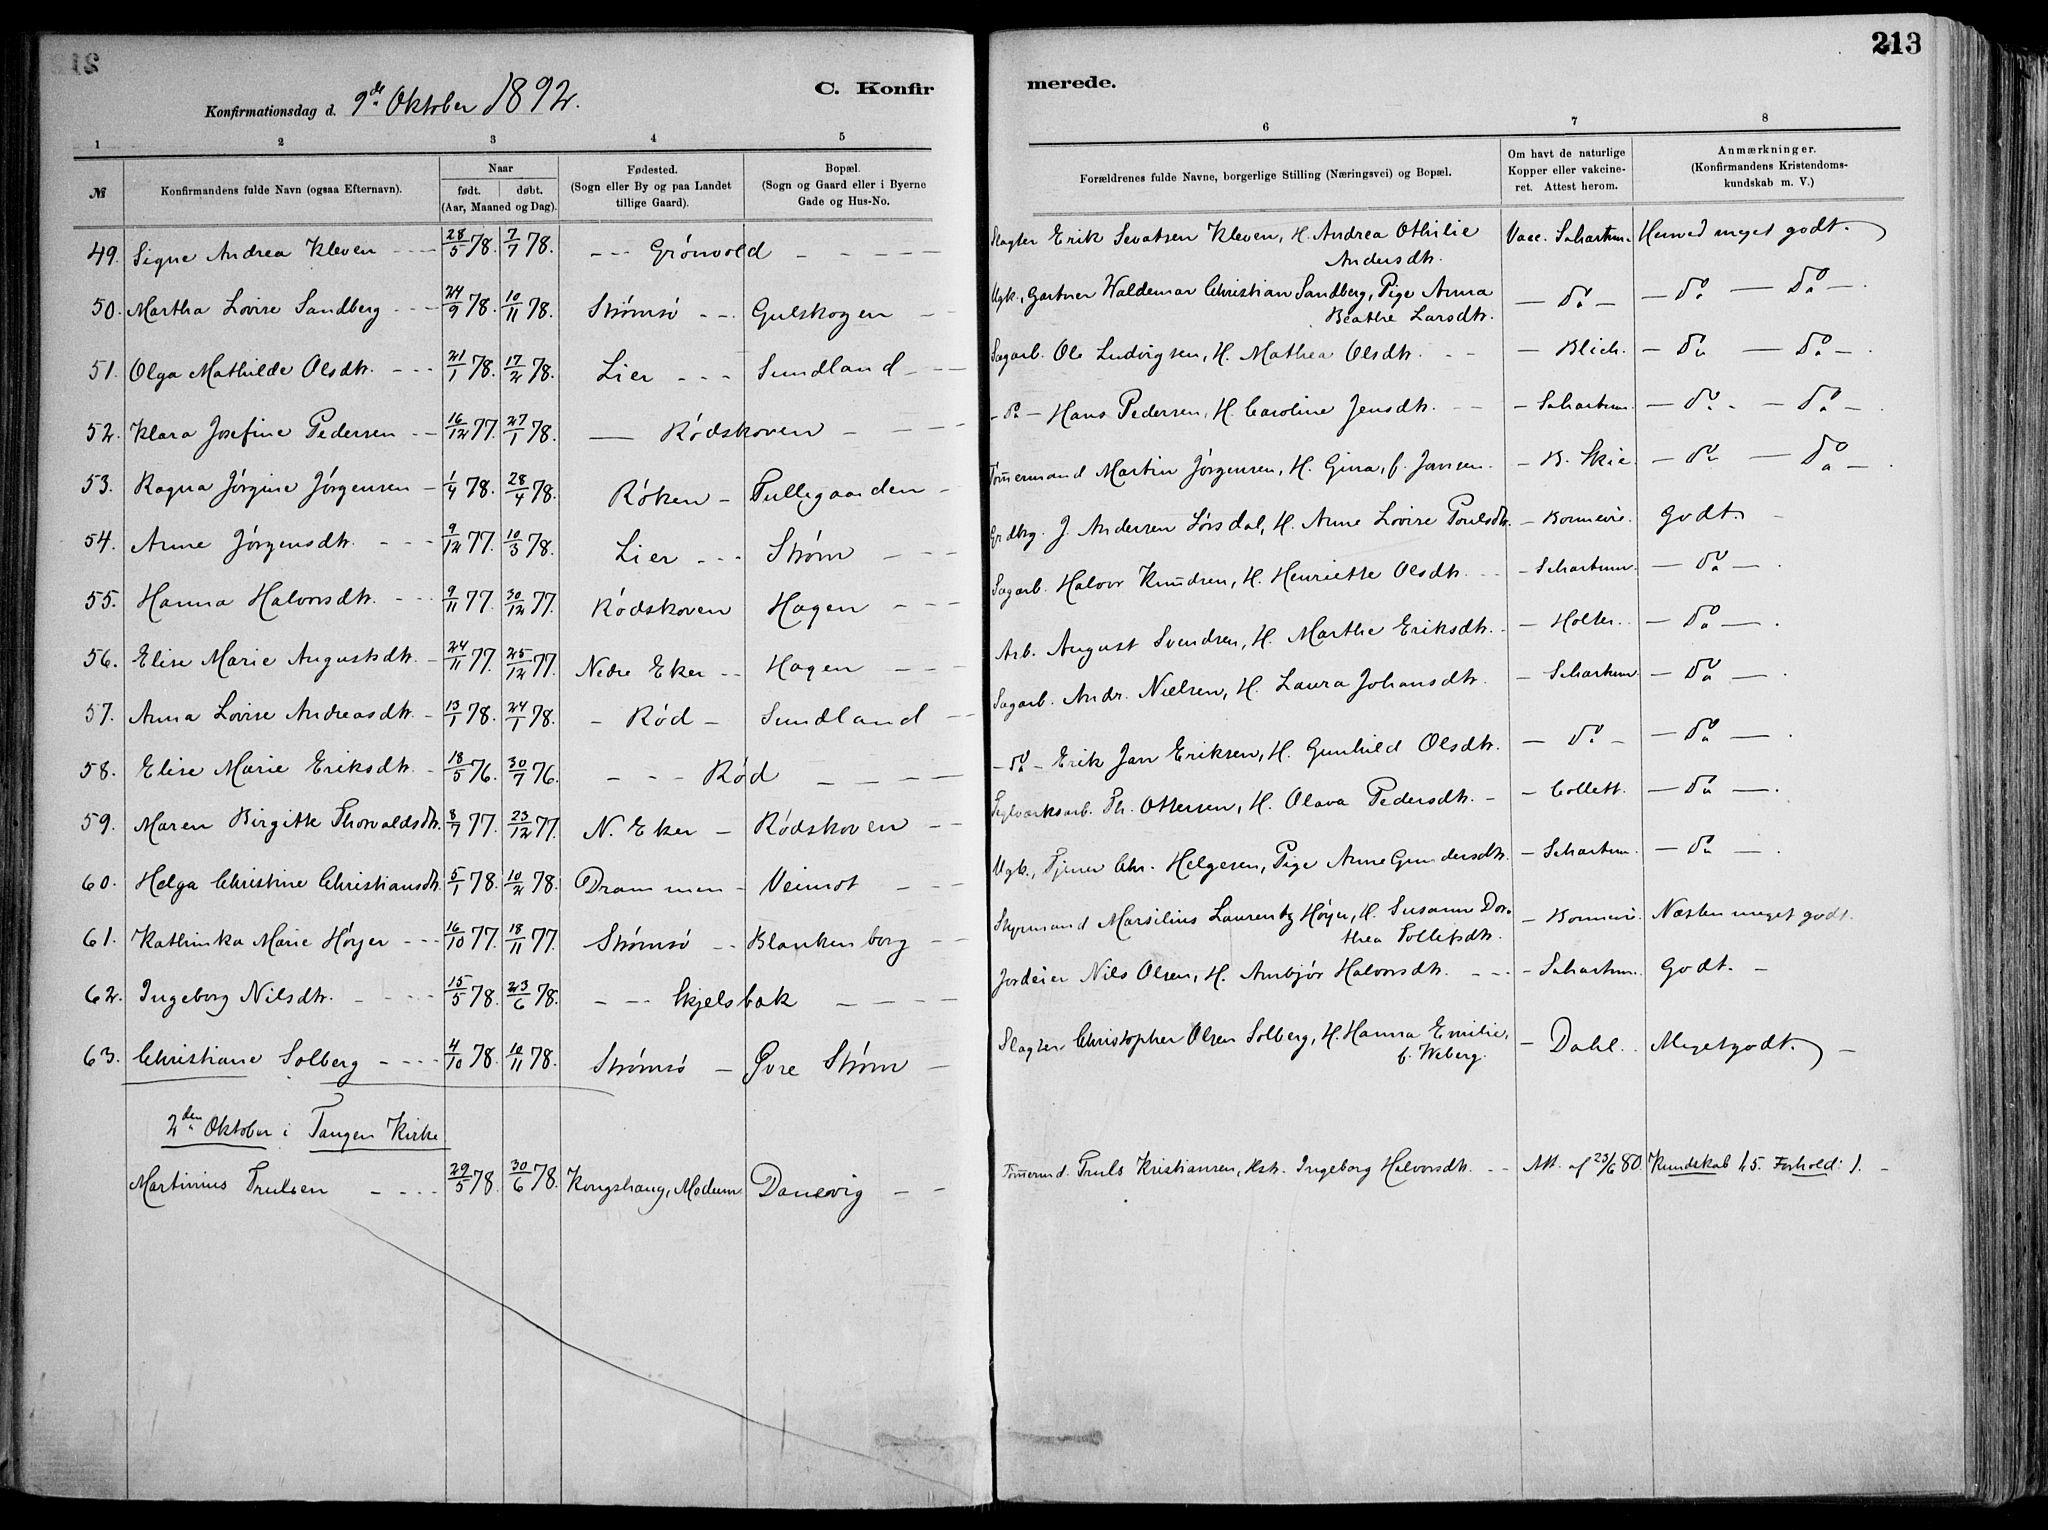 213
C. Konfirmerede.
Konfirmationsdag d. 9de Oktober 1892.
1 2 3 4 5 6 7 8
№ Konfirmandens fulde Navn (ogsaa Efternavn). Naar født. døbt. (Aar, Maaned og Dag). Fødested. (Sogn eller By og paa Landet tillige Gaard). Bopæl. (Sogn og Gaard eller i Byerne Gade og Hus-No. Forældrenes fulde Navne, borgerlige Stilling (Næringsvei) og Bopæl. Om havt de naturlige Kopper eller vakcineret. Attest herom. Anmærkninger. (Konfirmandens Kristendomskundskab m. V.)
49. Signe Andrea Kleven 28/5 78. 7/7 78. Grönvold Slagter Erik Sevatsen Kleven, H. Andrea Othilie Andersdtr. Vacc. Schartum. Henved meget godt.
50. Martha Lovise Sandberg 24/9 78. 10/11 78. Strømsö Gulskogen Ugk., Gartner Waldemar Christian Sandberg, Pige Anna Beathe Larsdtr. – do – – do – do –
51. Olga Mathilde Olsdtr. 21/1 78. 17/2 78. Lier Sundland Sagarb. Ole Ludvigsen, H. Mathea Olsdtr. – Blich. – do – do –
52. Klara Josefine Pedersen 16/12 77. 27/1 78. Rödskoven – do – Hans Pedersen, H. Caroline Jensdtr. – Schartum. – do – do –
53. Ragna Jörgine Jörgensen 1/4 78. 28/4 78. Röken Tollegaarden Tömermand Martin Jörgensen, H. Gina, f. Jansen. – B. Skie. – do – do –
54. Anne Jörgensdtr. 9/12 77. 10/3 78. Lier Ström J. Andersen Lörsdal, H. Anne Lovise Poulsdtr. – Bonnevie. Godt.
55. Hanna Halvorsdtr. 9/11 77. 30/12 77. Rödskoven Hagen Sagarb. Halvor Knudsen, H. Henriette Olsdtr. – Schartum. – do –
56. Elise Marie Augustsdtr. 24/11 77. 25/12 77. Nedre Eker Hagen Arb. August Svendsen, H. Marthe Eriksdtr. – Holter. – do –
57. Anna Lovise Andreasdtr. 13/1 78. 24/1 78. – Röd – Sundland Sagarb. Andr. Nielsen, H. Laura Johansdtr. – Schartum – do –
58. Elise Marie Eriksdtr. 18/5 76. 30/7 76. Röd – do – Erik Jan Eriksen, H. Gunhild Olsdtr. – do – – do –
59. Maren Birgitte Thorvaldsdtr. 8/7 77. 23/12 77. N. Eker – Rödskoven Teglværksarb. Th. Ottersen, H. Olava Pedersdtr. – Collett. – do –
60. Helga Christine Christiansdtr. 5/1 78. 10/2 78. Drammen – Veimot Ugk., Tjener Chr. Helgesen, Pige Anne Gundersdtr. – Schartum. – do –
61. Kathinka Marie Höyer 16/10 77. 18/11 77. Strömsö Blankenborg Styrmand Marsilius Laurentz Höyer, H. Susanne Dorthea Tollefsdtr. – Bonnevie. Næsten meget godt.
62. Ingeborg Nilsdtr. 15/5 78. 23/6 78. Skjelsbæk Jordeier Nils Olsen, H. Anbjör Halvorsdtr. – Schartum. Godt. –
63. Christiane Solberg 4/10 78. 10/11 78. Strömsö – Övre Ström Slagter Christopher Olsen Solberg, H. Hanna Emilie, f. Weberg. – Dahl. Meget godt. –
2den Oktober i Tangen Kirke
Martinius Trulsen 29/5 78. 30/6 78. Kongshaug, Modum Danevig Tömermd. Truls Kristiansen, Kst. Ingeborg Halvorsdtr. Att. af 23/6 80. Kundskab 1,5. Forhold: 1. –